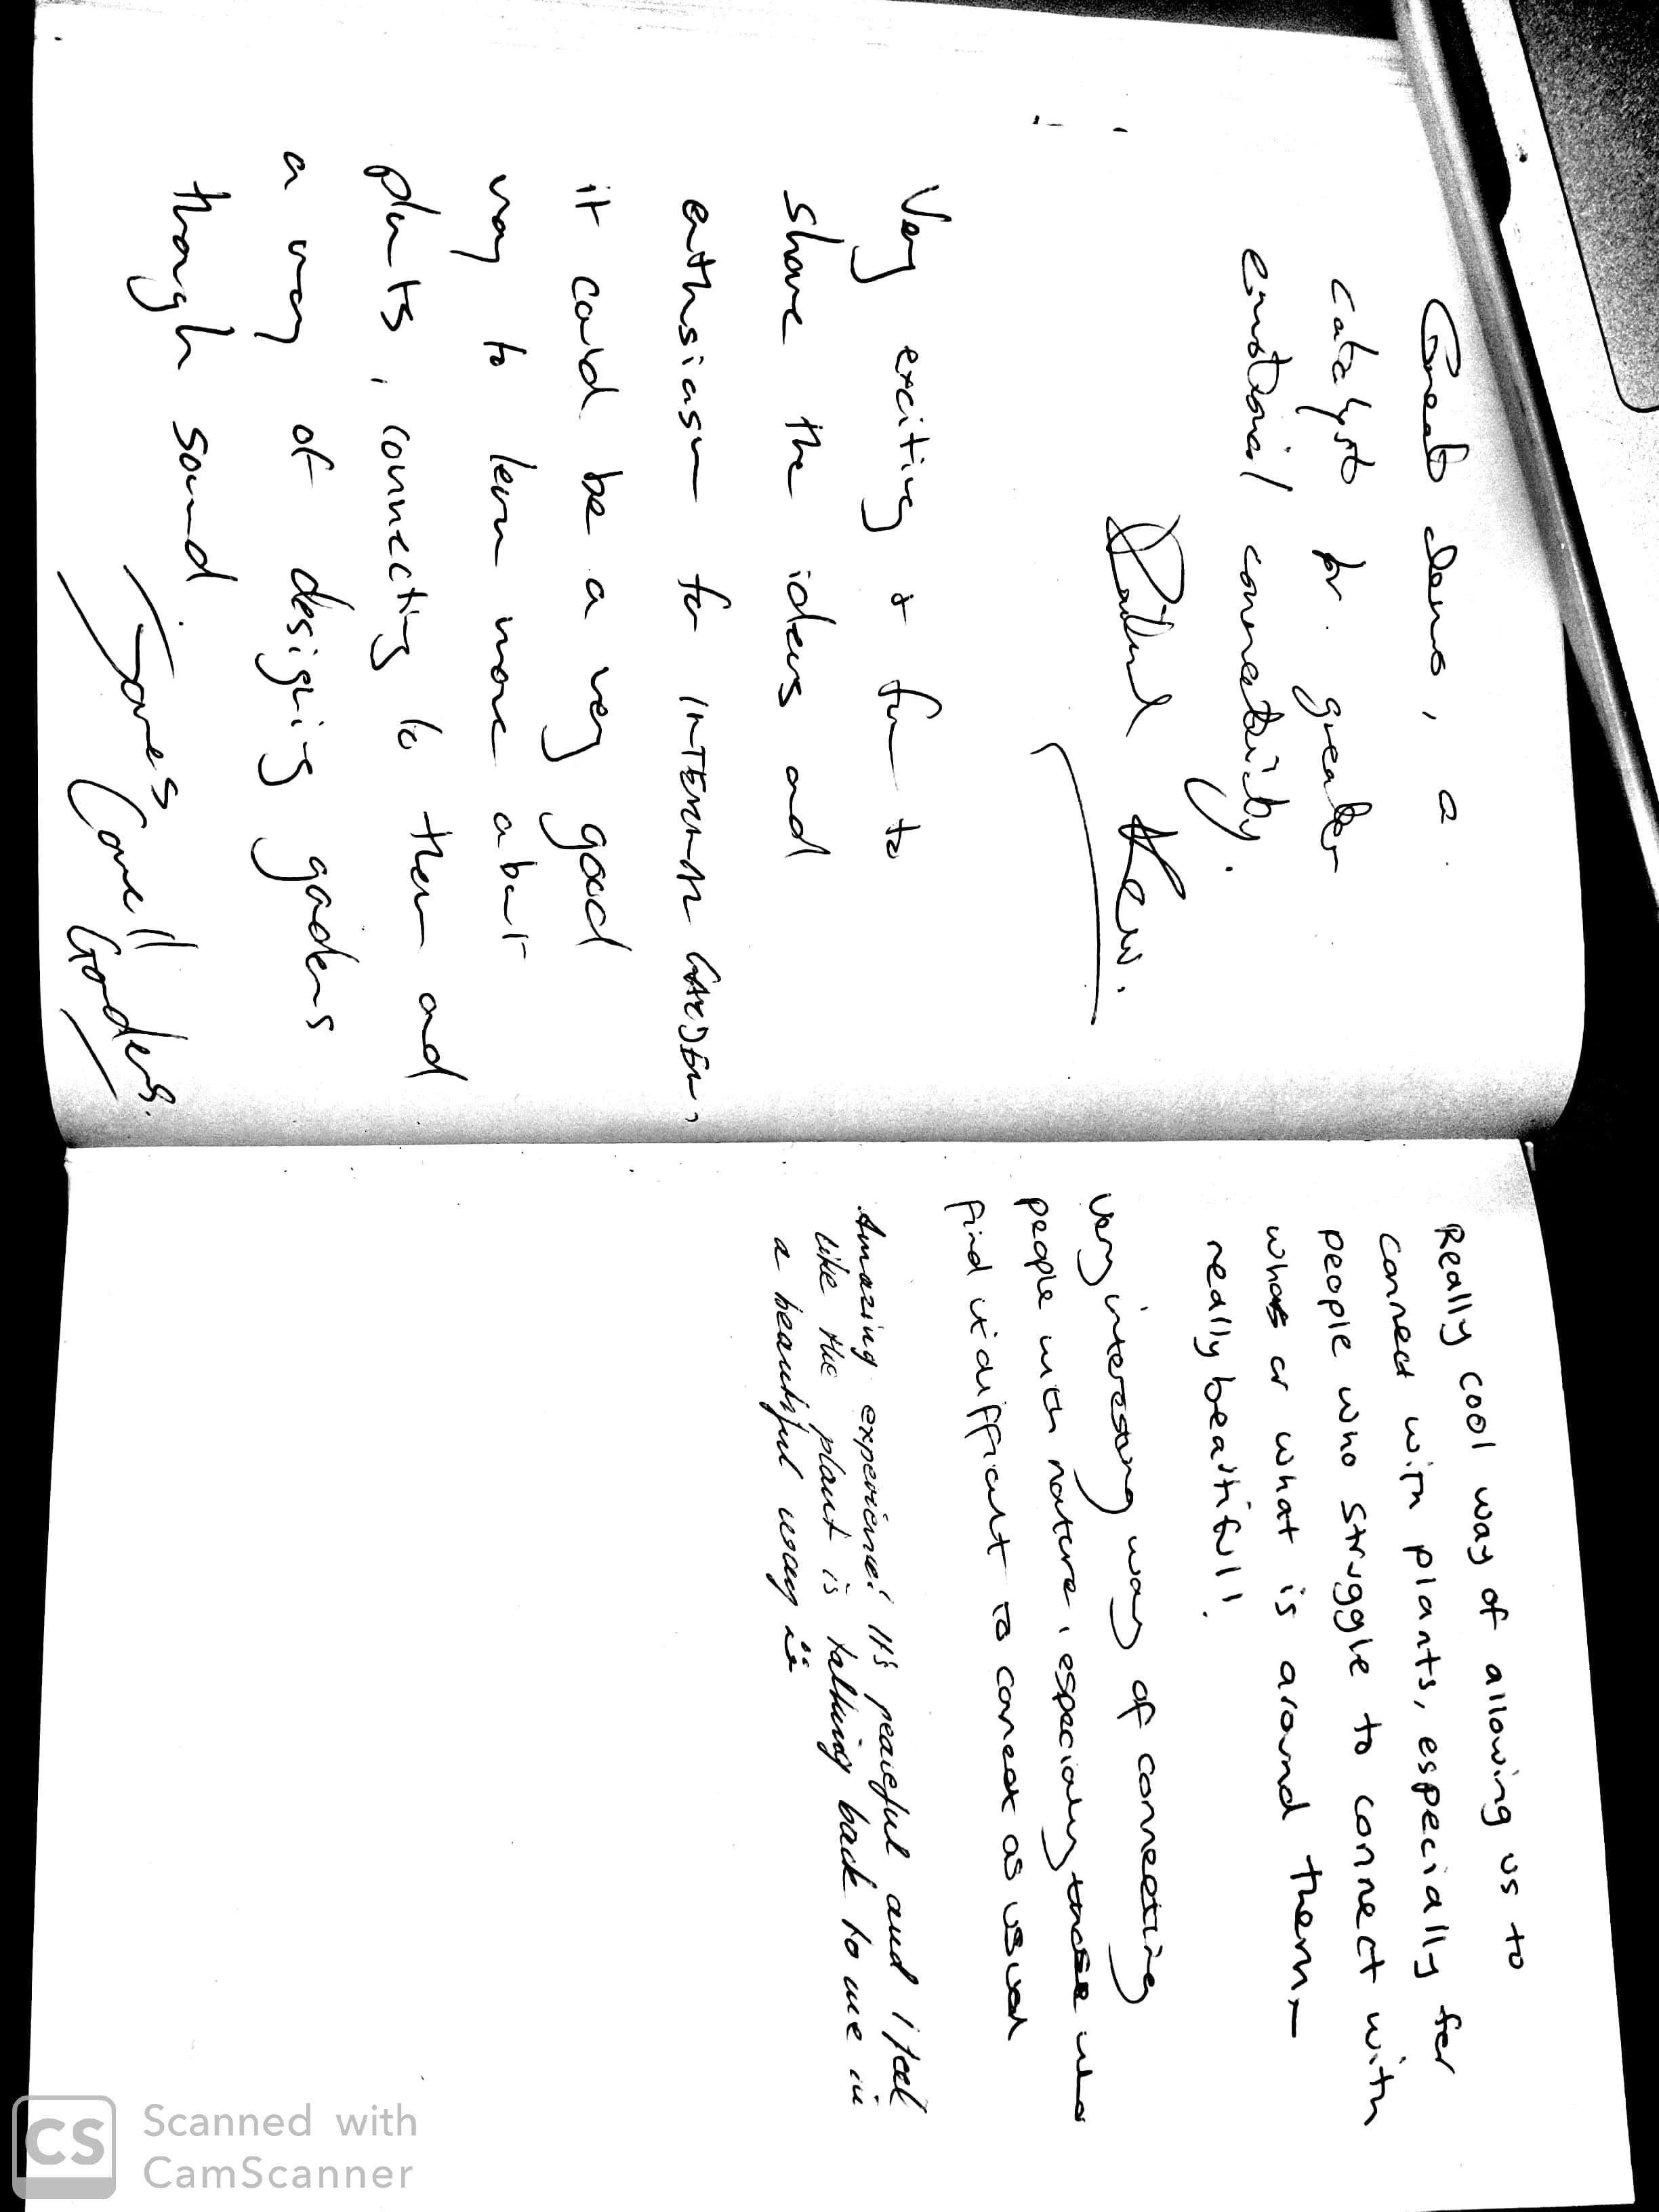 Great demo, a
catalyst for greater
emotional connectivity.
Kew.
Very exciting + fun to
share the ideas and
enthusiasm for INTERNAL GARDEN,
it could be a very good
way to learn more about
plants, connecting to them and
a way of designing gardens
through sound
James
Gardens.
Really cool way of allowing us to
connect with plants, especially for
people who struggle to connect with
whos or what is around them –
really beautiful!
Very interesting way of connecting
people with nature, especially those who
find it difficult to connect as usual
Amazing experience! It's peaceful and I feel
like the plant is talking back to me in
a beautiful way
CS
Scanned with
CamScanner